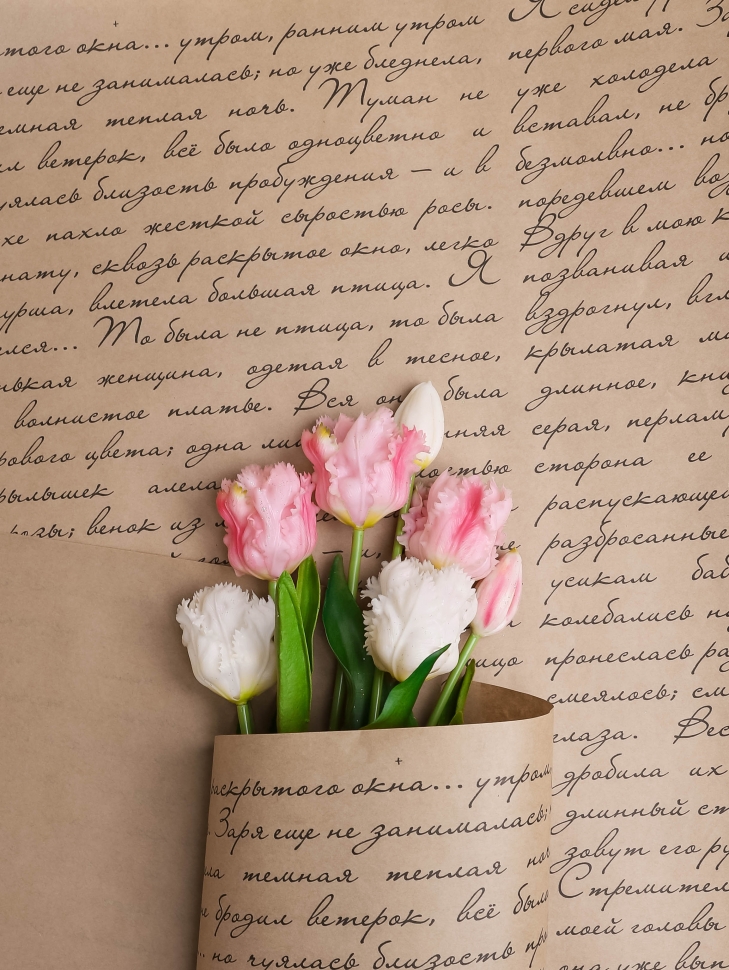 того окна... утром, ранним утром
еще не занималась; но уже бледнела,
емная теплая ночь. Туман не
л ветерок, всё было одноцветно и
уялась близость пробуждения — и в
хе пахло жесткой сыростью росы.
нату, сквозь раскрытое окно, легко
урша, влетела большая птица. Я
елся... То была не птица, то была
нькая женщина, одетая в тесное,
волнистое платье. Вся он была
рового цвета; одна ли нняя
рылышек алела ностью
озы; венок из л
Я сиде
первого мая. За
уже холодела
вставал, не бр
безмолвно... но
поредевшем воз
Вдруг в мою к
позванивая и
вздрогнул, вгл
крылатая ма
длинное, кни
серая, перлам
сторона ее
распускающе
разбросанные
усикам баб
колебались н
пронеслась ра
смеялось; см
глаза. Вес
дробила их
длинный ст
зовут его ру
Стремител
моей головы
она уже вып
раскрытого окна... утром,
Заря еще не занималась;
ла темная теплая ноч
е бродил ветерок, всё было
... но чуялась близость пр